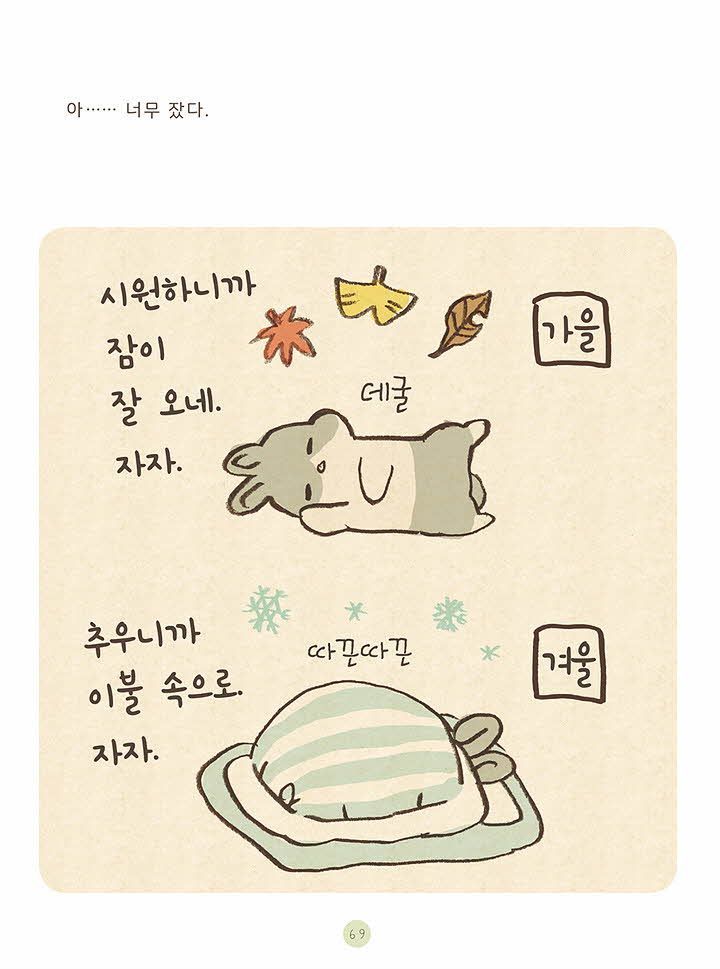 아…… 너무 잤다.
가을
시원하니까
잠이
잘 오네.
자자.
데굴
겨울
추우니까
이불 속으로.
자자.
따끈따끈
69